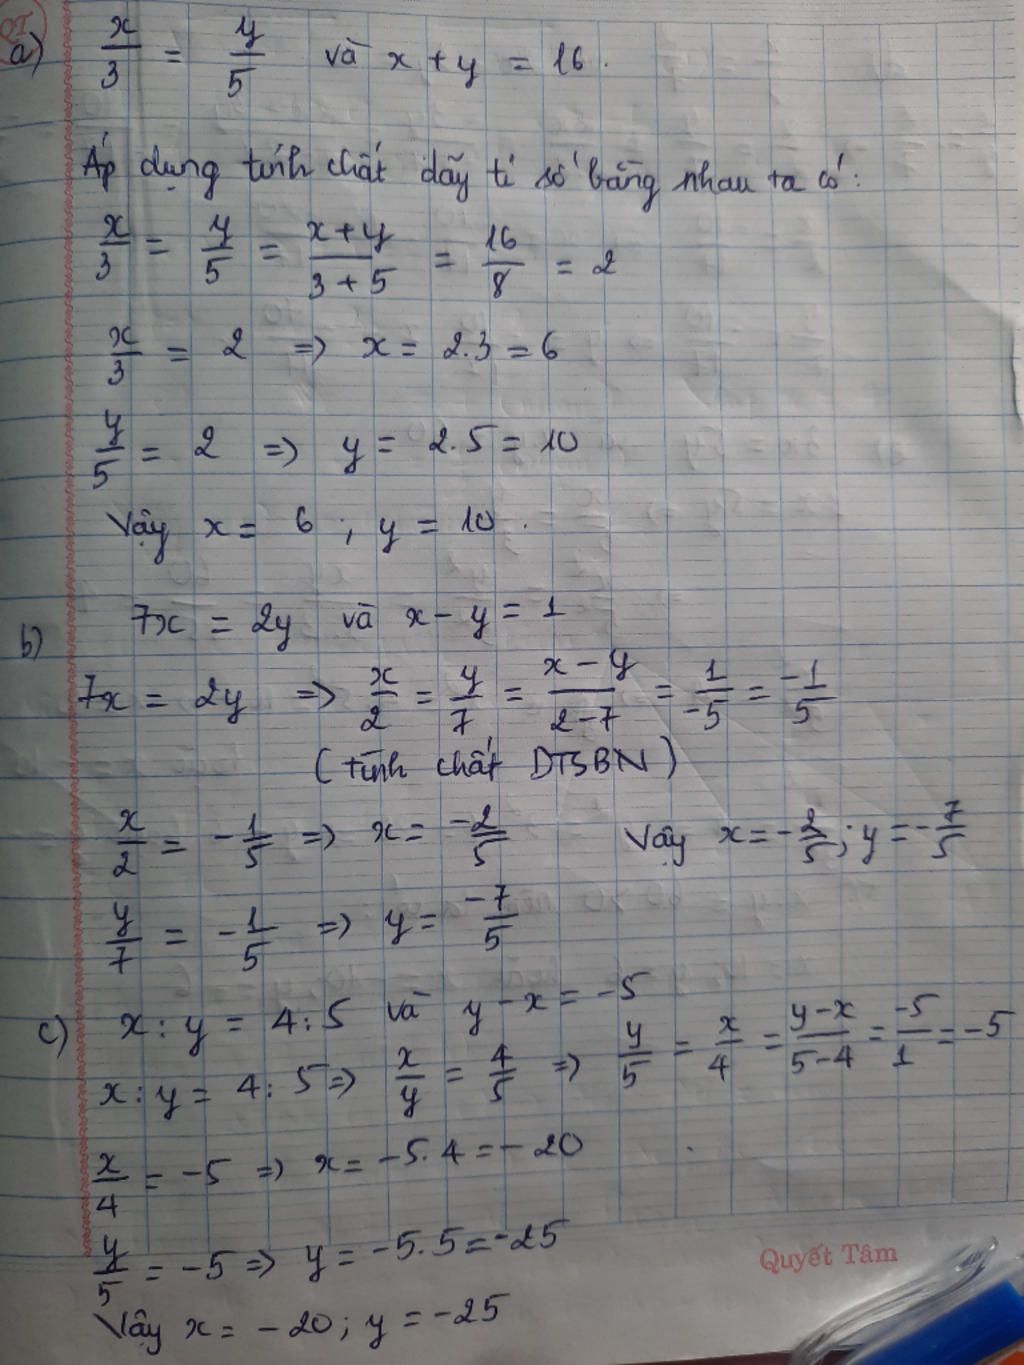 a) x/3 = y/5 và x + y = 16.
Áp dụng tính chất dãy tỉ số bằng nhau ta có:
x/3 = y/5 = (x+y)/(3+5) = 16/8 = 2
x/3 = 2 => x = 2.3 = 6
y/5 = 2 => y = 2.5 = 10
Vậy x = 6 ; y = 10.
b) 7x = 2y và x - y = 1
7x = 2y => x/2 = y/7 = (x-y)/(2-7) = 1/-5 = -1/5
(tính chất DTSBN)
x/2 = -1/5 => x = -2/5 Vậy x = -2/5; y = -7/5
y/7 = -1/5 => y = -7/5
c) x : y = 4 : 5 và y - x = -5
x : y = 4 : 5 => x/y = 4/5 => y/5 = x/4 = (y-x)/(5-4) = -5/1 = -5
x/4 = -5 => x = -5.4 = -20
y/5 = -5 => y = -5.5 = -25
Vậy x = -20; y = -25
Quyết Tâm